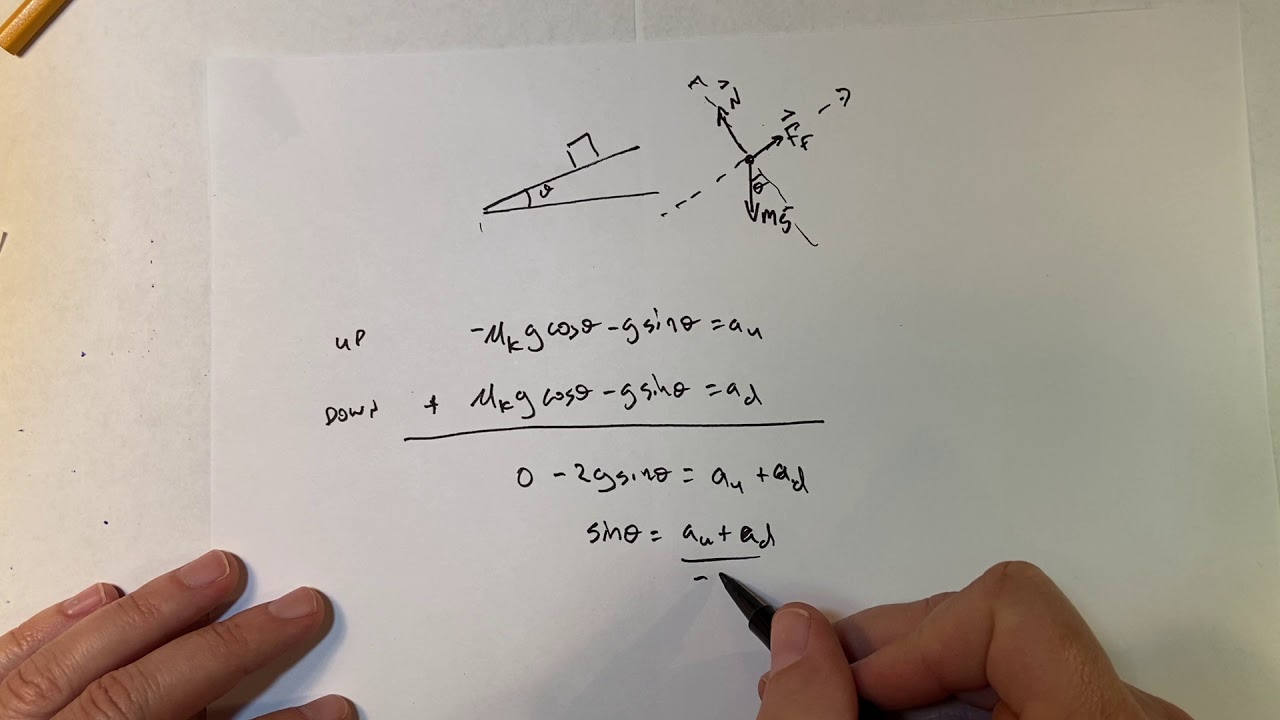 N
F_f
θ
θ
mg
UP -μ_k g cosθ - g sinθ = a_u
DOWN + μ_k g cosθ - g sinθ = a_d
0 - 2g sinθ = a_u + a_d
sinθ = a_u + a_d
-